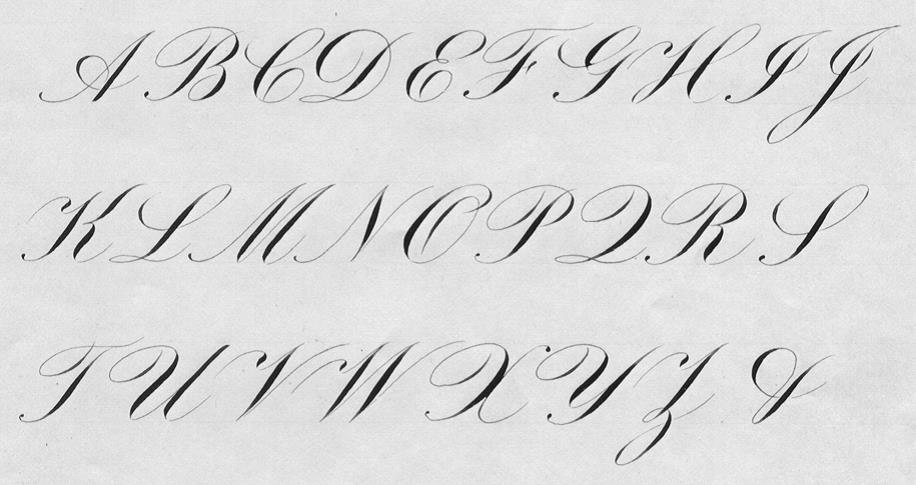 A B C D E F G H I J
K L M N O P Q R S
T U V W X Y Z &